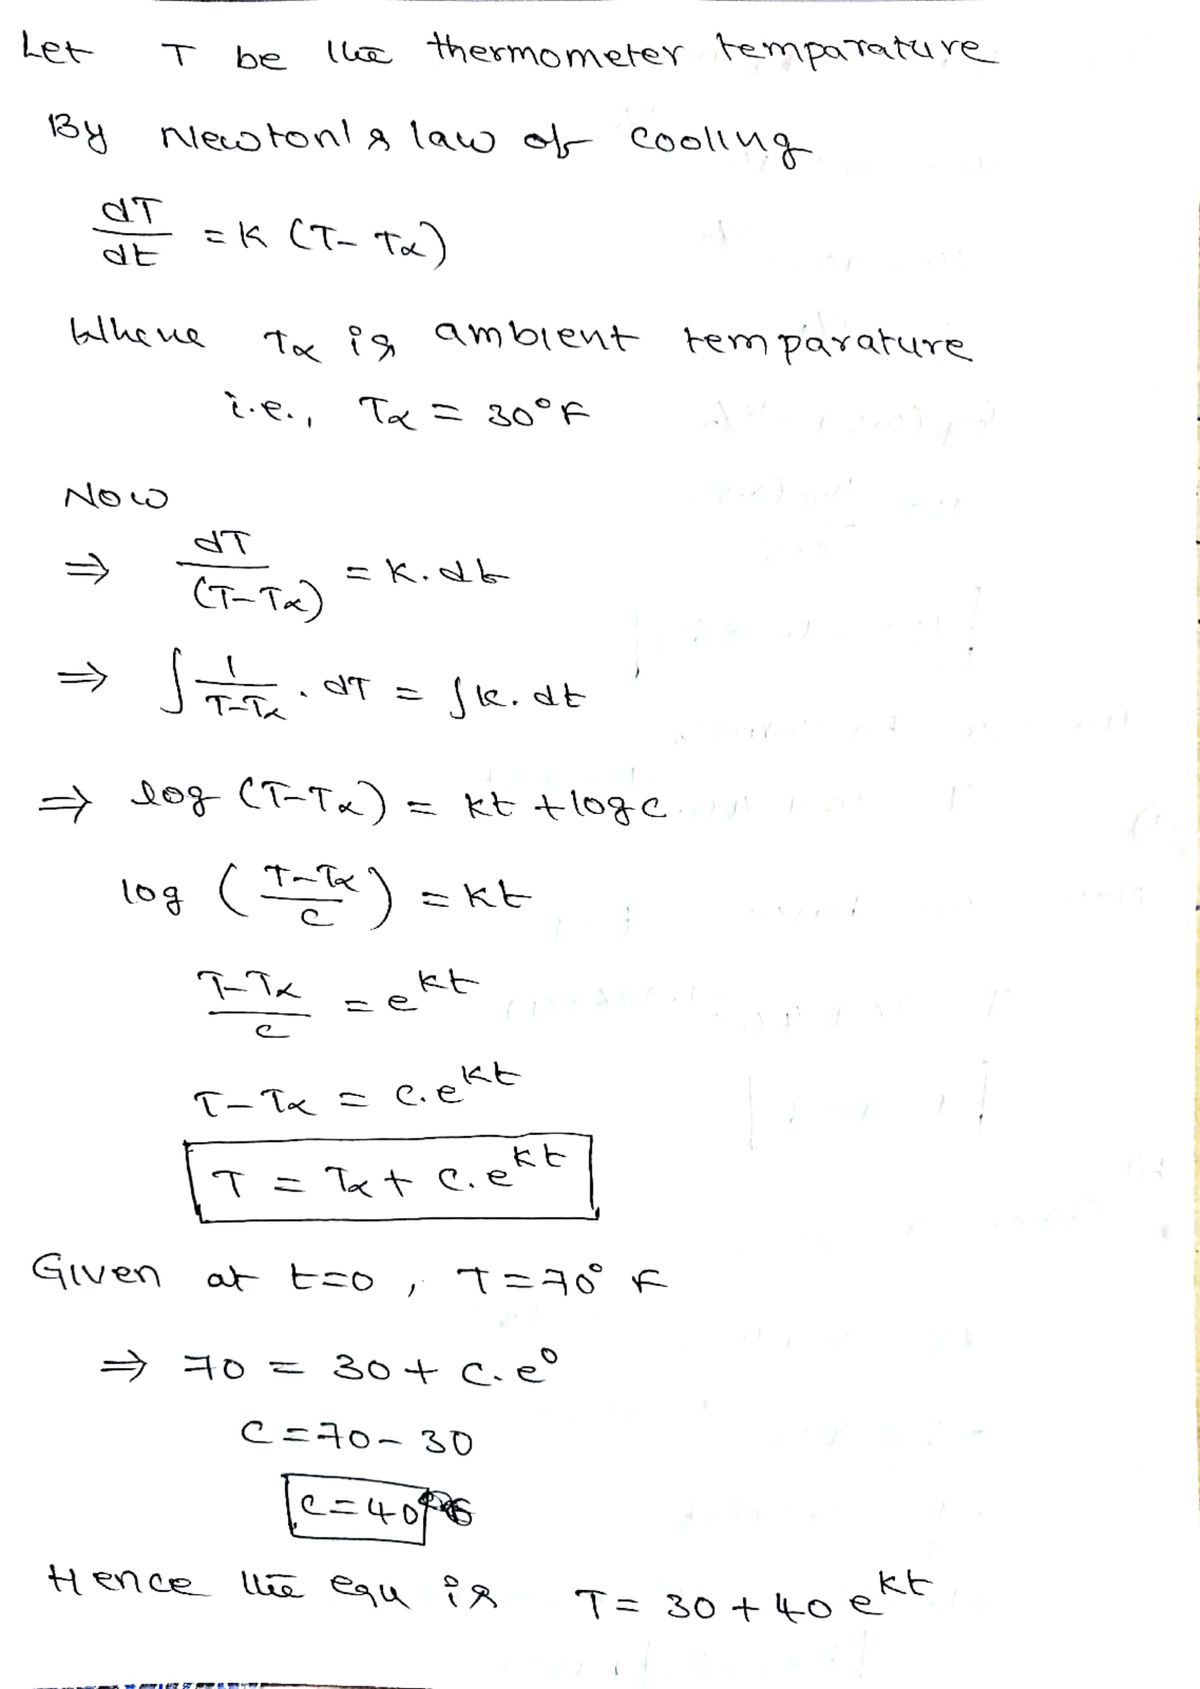 Let T be the thermometer temparature
By Newton's law of cooling
dT/dt = K (T - Tα)
Where Tα is ambient temparature
i.e., Tα = 30°F
Now
⇒ dT/(T-Tα) = K.dt
⇒ ∫ 1/(T-Tα) . dT = ∫k.dt
⇒ log (T-Tα) = kt + log c
log ((T-Tα)/c) = kt
(T-Tα)/c = e^kt
T-Tα = c.e^kt
T = Tα + c.e^kt
Given at t=0, T=70° F
⇒ 70 = 30 + c.e^0
c = 70 - 30
c = 40
Hence the equ is T = 30 + 40 e^kt